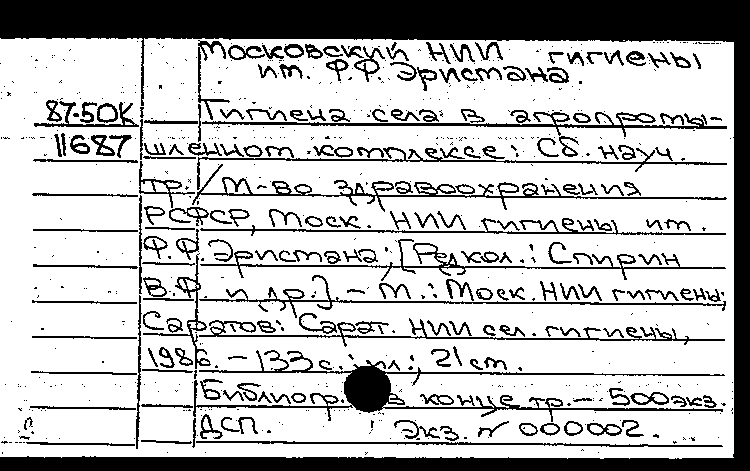 Московский НИИ гигиены
им. Ф.Ф. Эрисмана.
87-50К Гигиена села в агропромы-
11687 шленном комплексе: Сб. науч.
тр. / М-во здравоохранения
РСФСР, Моск. НИИ гигиены им.
Ф.Ф. Эрисмана; [Редкол.: Спирин
В.Ф. и др.] – М.: Моск. НИИ гигиены;
Саратов: Сарат. НИИ сел. гигиены,
1986. – 133 с.: ил.; 21 см.
Библиогр. в конце тр. – 500 экз.
ДСП. Экз. N 000002.